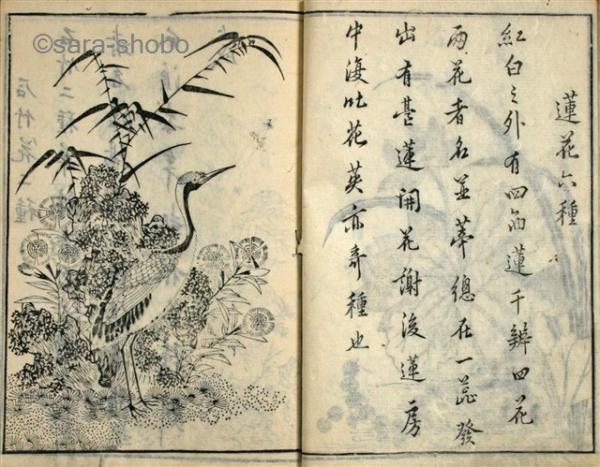 蓮花六種
紅白之外有四面蓮千辨四花
兩花者名並蒂總在一蕊發
出有臺蓮開花謝後蓮房
中復吐花英亦奇種也
©sara-shobo